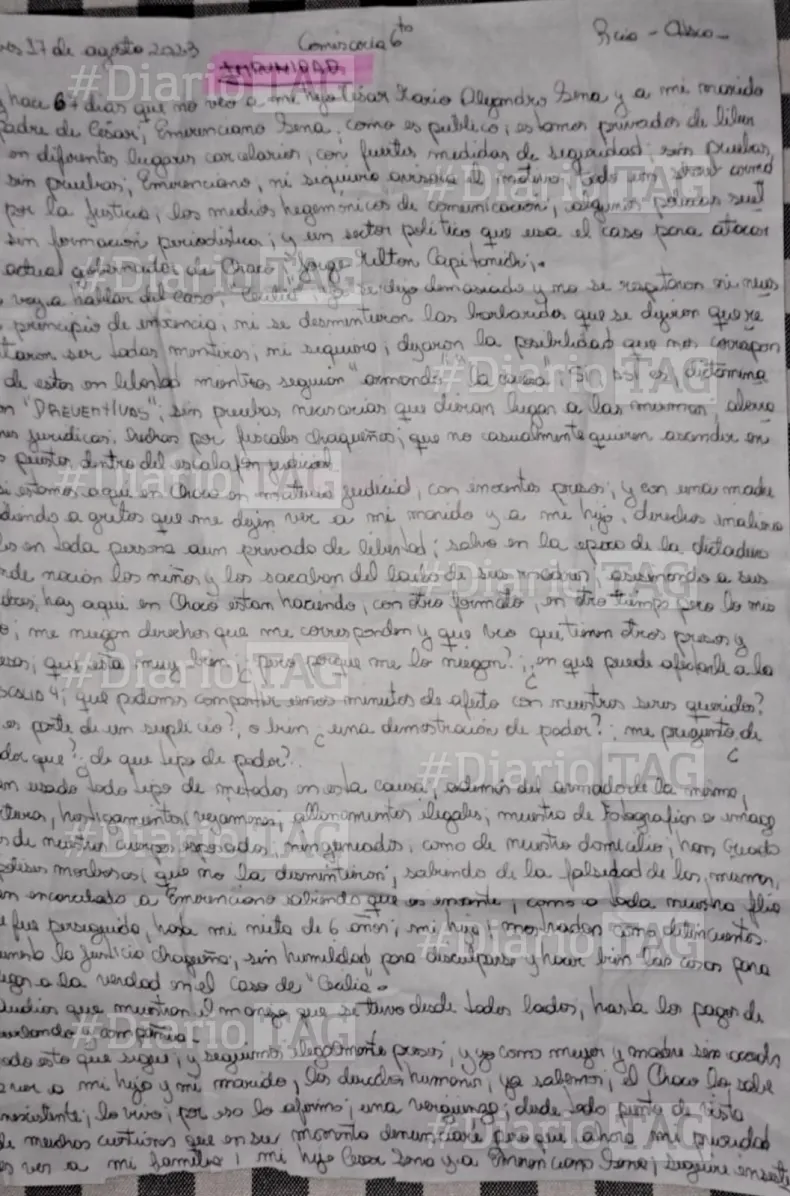 17 de agosto 2023 Comisaria 6to Rcia - Chaco -
IMPUNIDAD
hace 6 días que no veo a mi hijo César Mario Alejandro Sena y a mi marido
padre de César, Emerenciano Sena, como es publico, estamos privados de liber
en diferentes lugares carcelarios, con fuertes medidas de seguridad sin pruebas,
sin pruebas, Emerenciano, ni siquiera todo un show
por la Justicia, los medios hegemonicos de comunicación,
sin formación periodistica, y un sector politico que usa el caso para atacar
actual gobernador de Chaco Jorge Milton Capitanich.
voy a hablar del caso, Cecilia se dijo demasiado y no se respetaron ni
principio de inocencia, ni se desmintieron las barbaridades que se dijeron que re
taron ser todas mentiras, ni siquiera, dejaron la posibilidad que nos correspon
de estar en libertad mientras seguian "armando" "la causa"
"PREVENTIVAS", sin pruebas necesarias que dieran lugar a las mismas,
juridicas. hechas por fiscales chaqueños, que no casualmente quieren ascender en
puestos dentro del escalafón judicial
estamos aqui en Chaco en materia judicial, con inocentes presos, y con una madre
pidiendo a gritos que me dejen ver a mi marido y a mi hijo, derechos inaliena
en toda persona aun privado de libertad, salvo en la epoca de la dictadura
nde nacian los niños y los sacaban del lado de sus madres, asesinando a sus
hoy aqui en Chaco estan haciendo, con otro formato, en otro tiempo pero lo mis
o, me niegan derechos que me corresponden y que veo que tienen otros presos y
esas, que esta muy bien, ¿pero porque me lo niegan?, ¿en que puede afectarle a la
que podamos compartir unos minutos de afecto con nuestros seres queridos?
es parte de un suplicio?, o bien ¿una demostración de poder?, me pregunto de
¿por que?, de que tipo de poder?
an usado todo tipo de metodos en esta causa, además del armado de la misma,
hostigamientos, vejamenes, allanamientos ilegales, muestra de Fotografias e imag
de nuestros cuerpos esposados, como de nuestro domicilio, han creado
morbosas, que no la desmintieron, sabiendo de la falsedad de las mismas,
an encarcelado a Emerenciano sabiendo que es inocente, como a toda nuestra flia
fue perseguida, hasta mi nieta de 6 años, mi hijo, mostrados como delincuentes.
la Justicia chaqueña, sin humildad para disculparse y hacer bien las cosas para
llegar a la verdad en el caso de "Cecilia".
Audios que muestran el manejo que se tuvo desde todos lados, hasta los pagos de
y compañia.
todo esto que sigue, y seguimos ilegalmente presos, y yo como mujer y madre sin
ver a mi hijo y mi marido, los derechos humanos, ya sabemos, el Chaco lo sabe
inexistente, lo vivo, por eso lo afirmo, una verguenza, desde todo punto de vista
de muchas cuestiones que en su momento denunciaré porque ahora mi prioridad
es ver a mi familia, mi hijo Cesar Sena y a Emerenciano Sena, seguire
#DiarioTAG
#DiarioTAG
#DiarioTAG
#DiarioTAG
#DiarioTAG
#DiarioTAG
#DiarioTAG
#DiarioTAG
#DiarioTAG
#DiarioTAG
#DiarioTAG
#DiarioTAG
#DiarioTAG